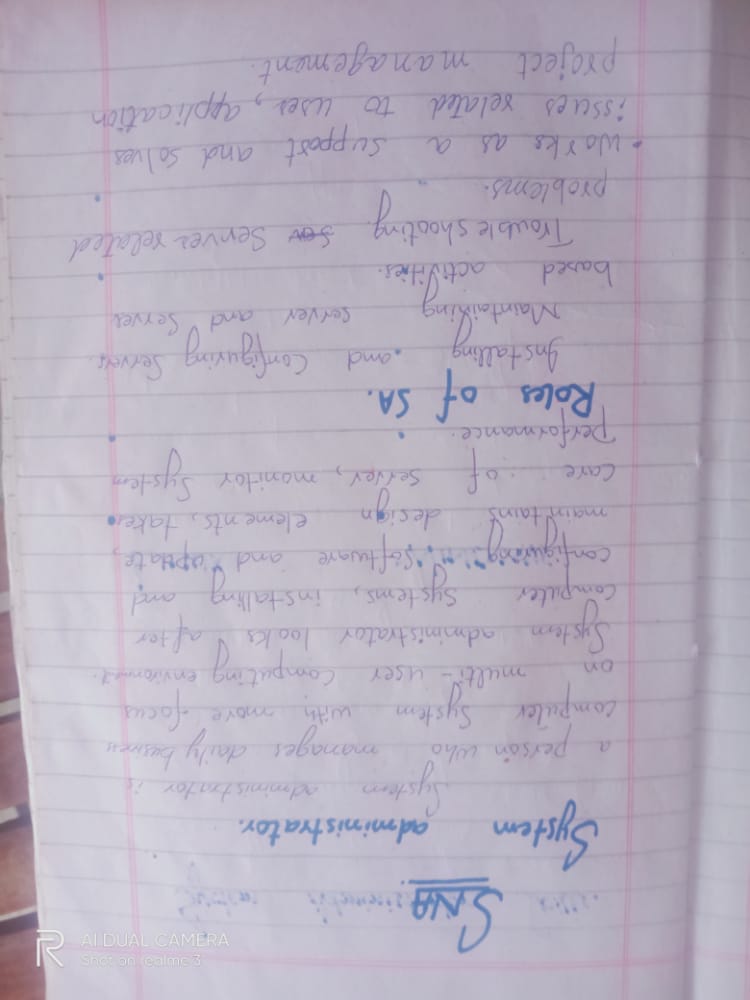 SNA
System administrator.
System administrator is
a person who manages daily business
computer System with more focus
on multi-user Computing environment.
System administrator looks after
Computer systems, installing and
configuring software and update,
maintains design elements, take
care of server, monitor System
performance.
Roles of SA.
Installing and Configuring Servers.
Maintaining server and Server
based activities.
Trouble shooting Server related
problems.
• Works as a support and solves
issues related to user, application
project management.
AI DUAL CAMERA
Shot on realme 3